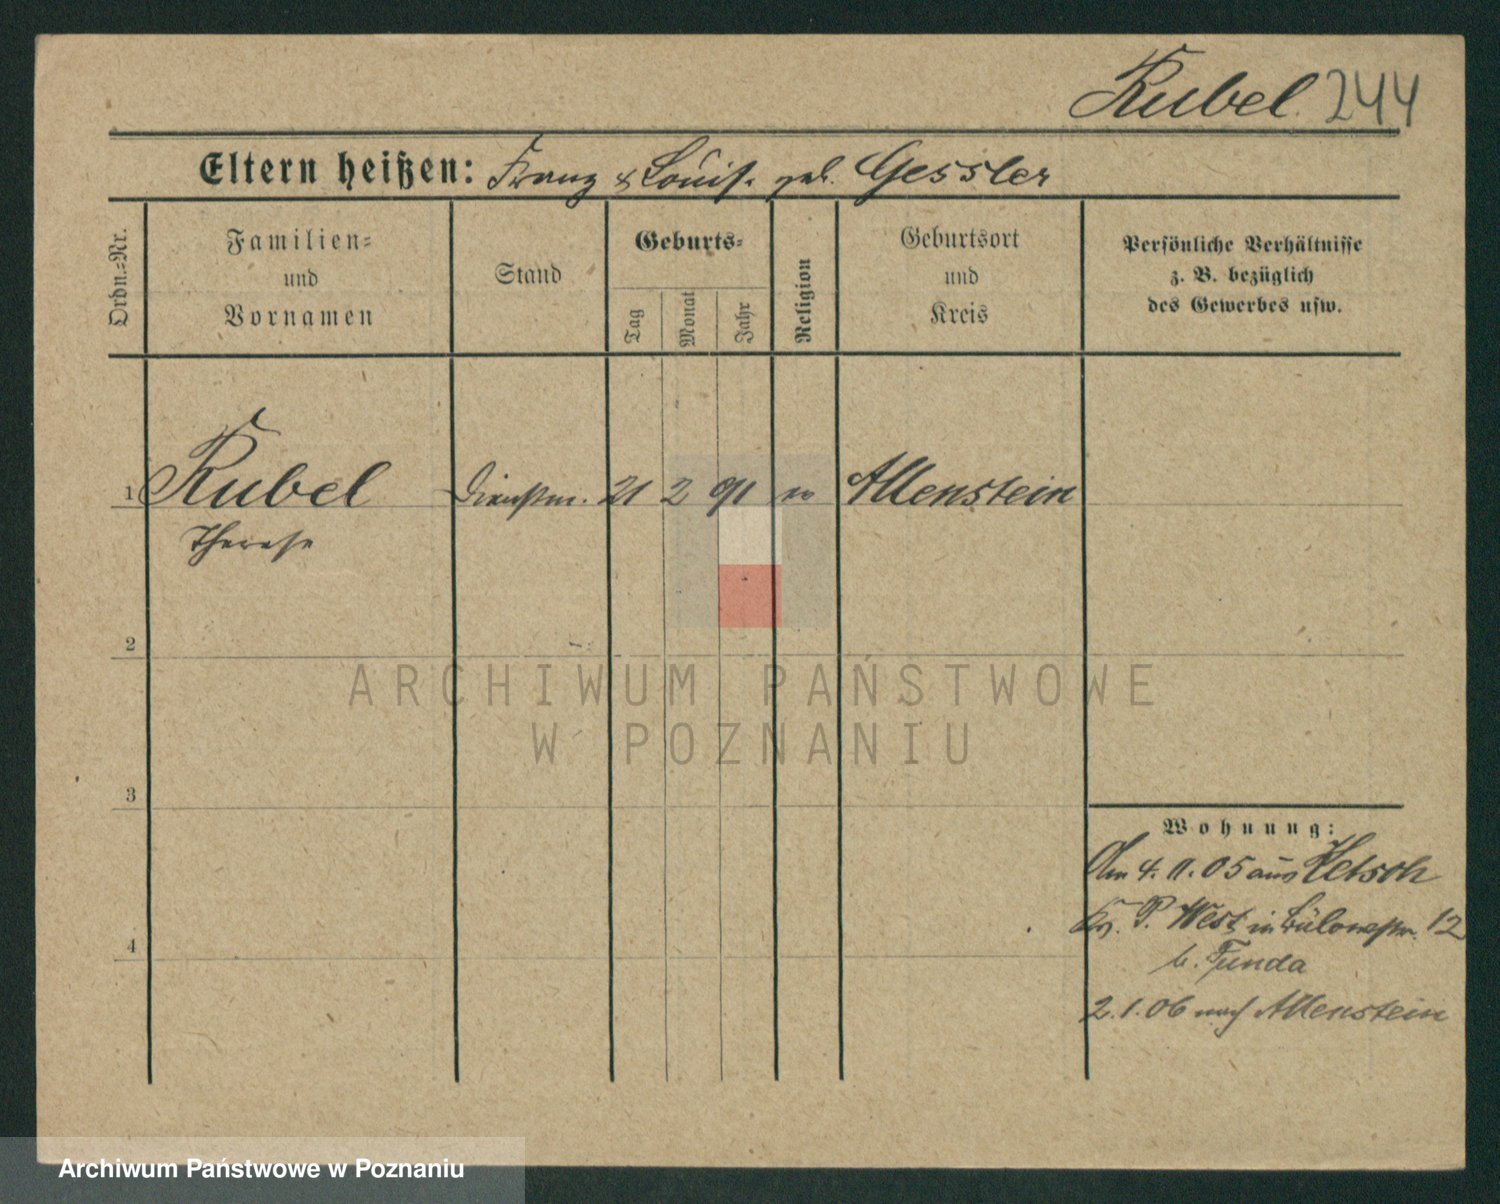 Rubel. 244
Eltern heißen: Franz & Louise geb. Gessler
Ordn.-Nr.
Familien-
und
Vornamen
Stand
Geburts-
Tag
Monat
Jahr
Religion
Geburtsort
und
Kreis
Persönliche Verhältnisse
z. B. bezüglich
des Gewerbes usw.
1 Rubel Dienstm. 21 2 91 Allenstein
Therese
2
3
4
Wohnung:
Am 4. 11. 05 aus
Kr. P. West in Bülowstr. 12
b. Funda
2. 1. 06 nach Allenstein
ARCHIWUM PAŃSTWOWE
W POZNANIU
Archiwum Państwowe w Poznaniu